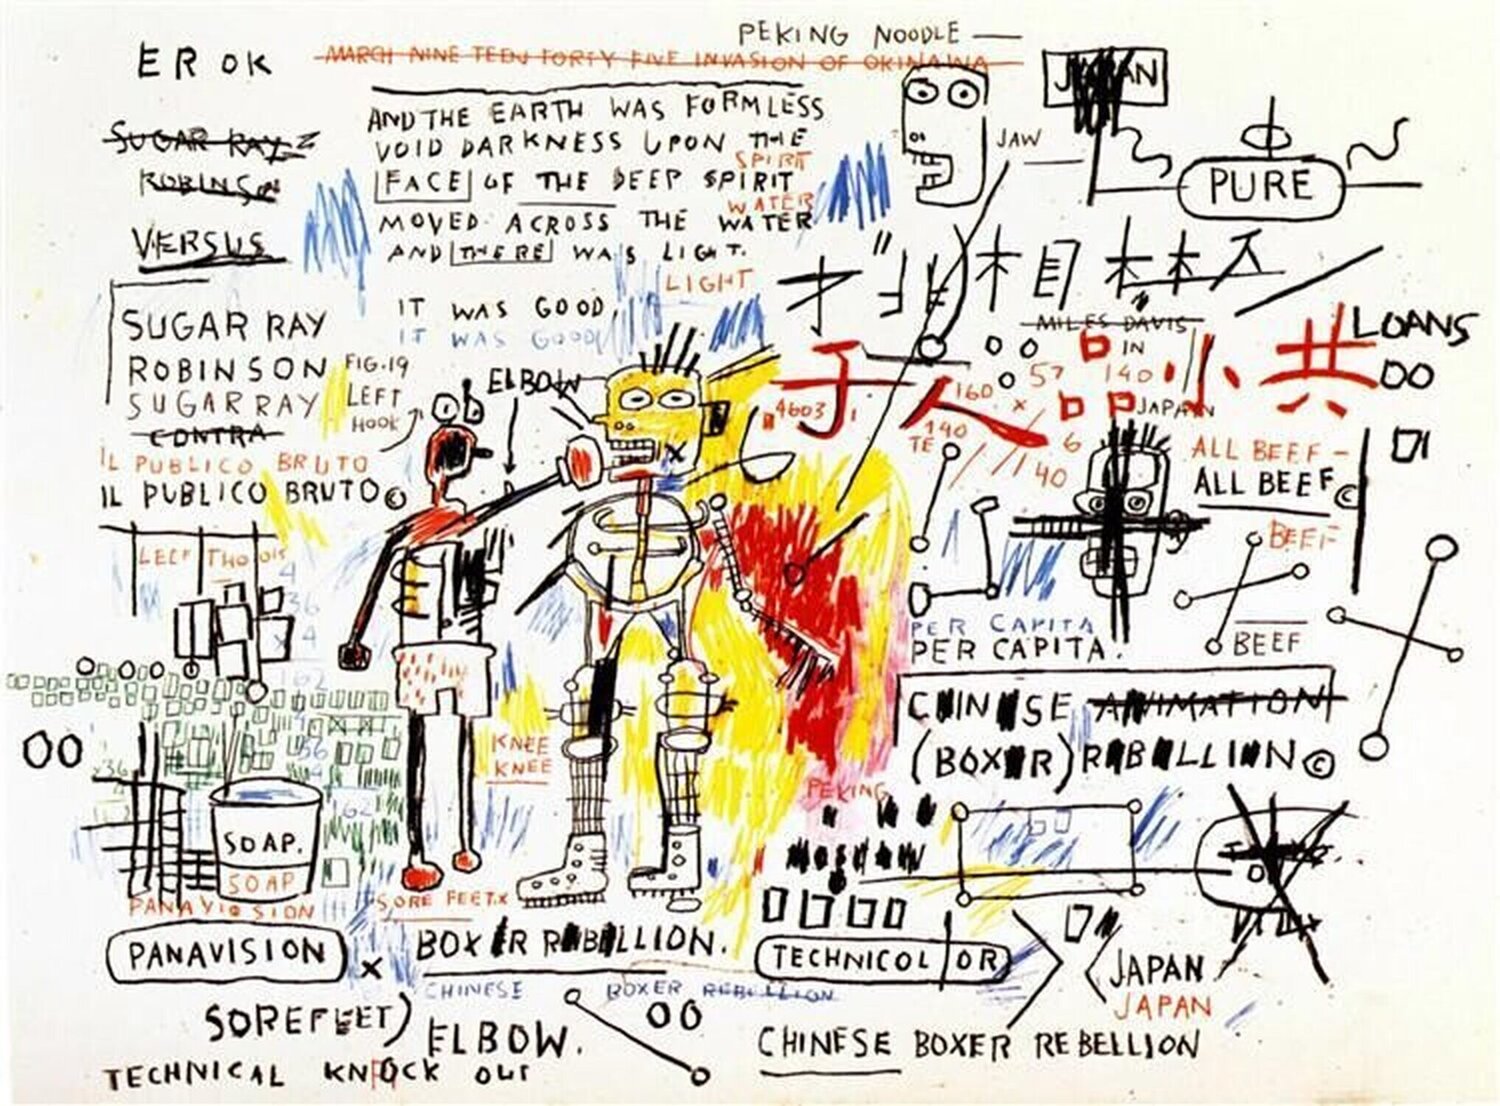 PEKING NOODLE
EROK
MARCH NINE TEDJ FORTY FIVE INVASION OF OKINAWA
JAPAN
AND THE EARTH WAS FORMLESS
SUGAR RAY
VOID DARKNESS UPON THE
SPIRIT
JAW
ROBINSON
FACE OF THE DEEP SPIRIT
WATER
PURE
MOVED ACROSS THE WATER
VERSUS
AND THERE WAS LIGHT.
LIGHT
IT WAS GOOD,
IT WAS GOOD
SUGAR RAY
ROBINSON
SUGAR RAY
CONTRA
IL PUBLICO BRUTO
IL PUBLICO BRUTO©
FIG.19
LEFT
HOOK
ELBOW
MILES DAVIS
LOANS
00
IN
57 140
160 x
4603
子人品小共
JAPAN
140
TE
6
40
ALL BEEF –
ALL BEEF©
BEEF
BEEF
PER CAPITA
PER CAPITA.
4
36
x 4
162
CHINESE ANIMATION
(BOXER) REBELLION©
00
KNEE
KNEE
56
x36
162
PEKING
SOAP.
SOAP
MOSCOW
PANAVISION
SORE FEET.X
PANAVISION
X
BOXER REBELLION.
TECHNICOLOR
JAPAN
JAPAN
CHINESE BOXER REBELLION
SOREFEET)
ELBOW.
00
CHINESE BOXER REBELLION
TECHNICAL KNOCK OUT